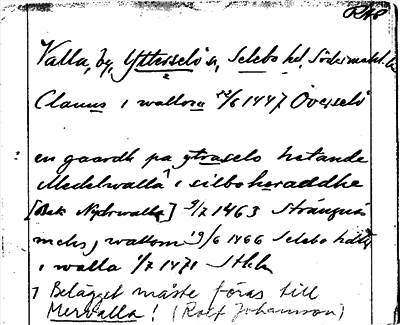 RAP
Valla, by, Ytterselö sn, Selebo hd, Södermanl. l.
Clauus i wallora 12/6 1447 Överselö
en gaardh pa ytraselo hetande
Medelwalla i silboheraddhe
[Bak Nydrwalla] 9/7 1463 Strängnäs
mels, wallom 19/6 1466 Selebo hdtg
i walla 1/7 1471 Sthlm
7 Belägget måste föras till
Mervalla! (Rolf Johansson)